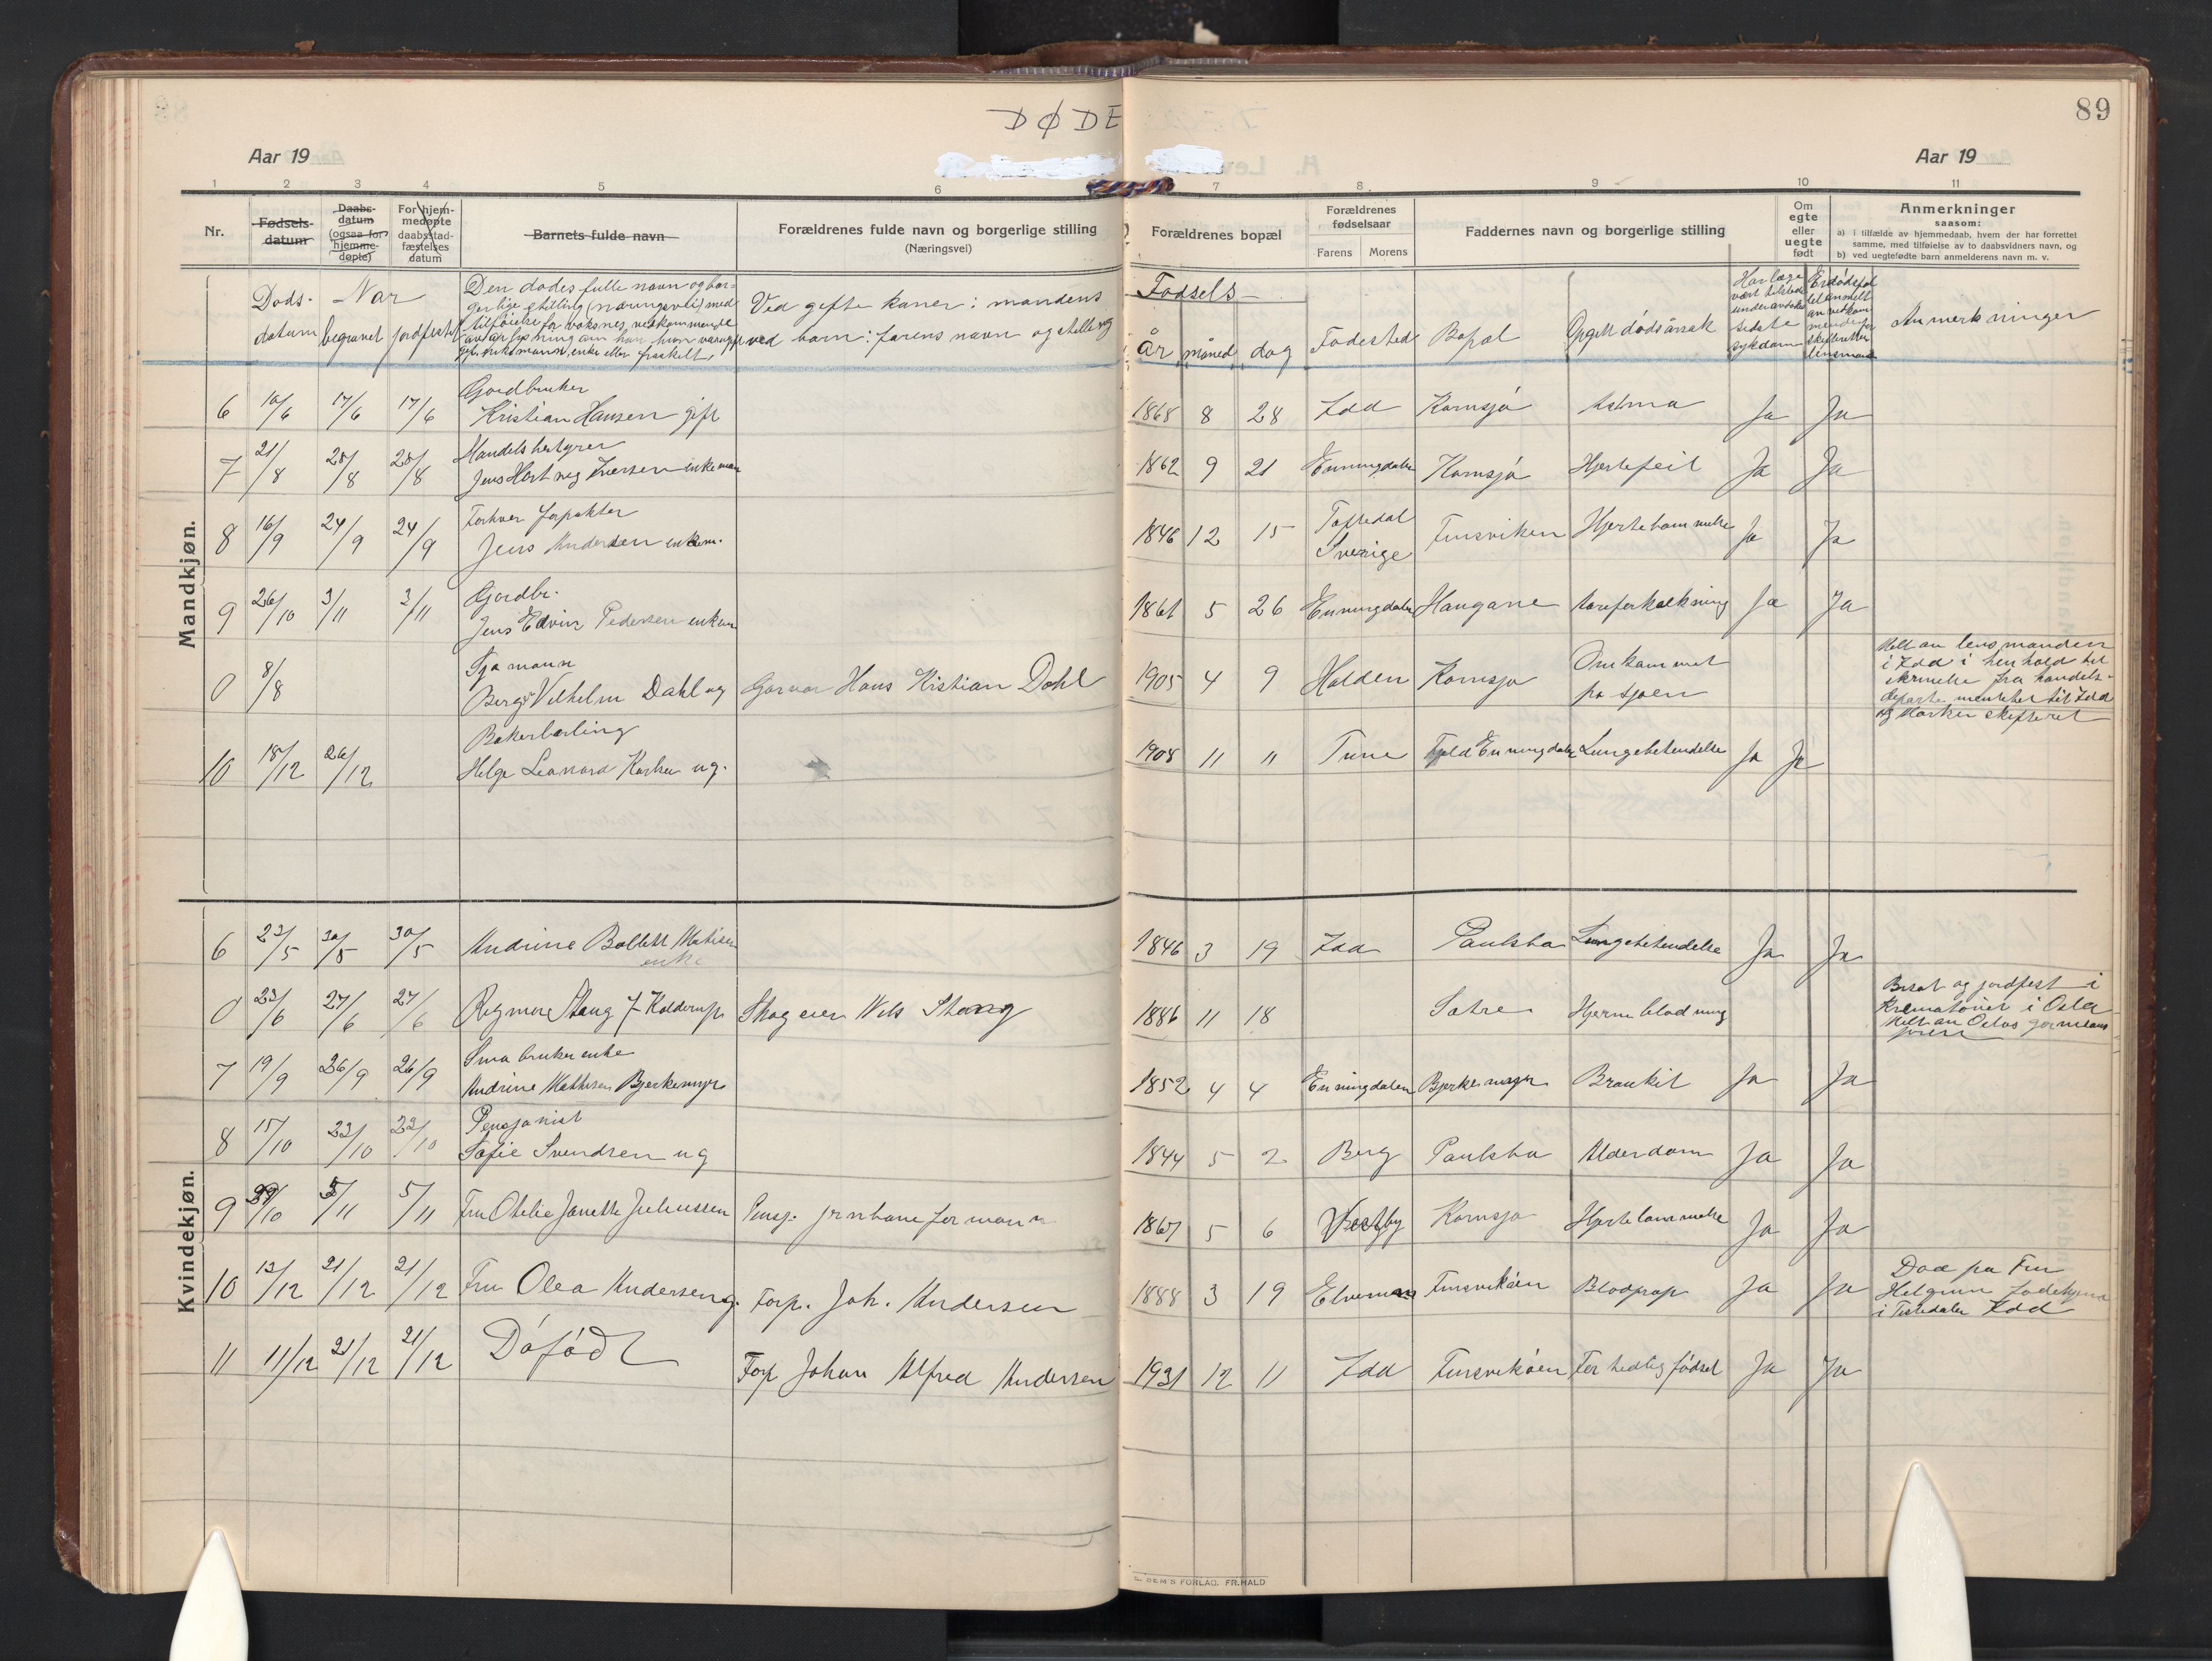 DØDE
89
Aar 19
Aar 19
1 2 3 4 5 6 7 8 9 10 11
Nr.
Fødsels-
datum
Daabs-
datum
(ogsaa for
hjemme-
døpte)
For hjem-
medøpte
daabsstad-
fæstelses
datum
Barnets fulde navn
Forældrenes fulde navn og borgerlige stilling
(Næringsvei)
Forældrenes bopæl
Forældrenes
fødselsaar
Farens Morens
Faddernes navn og borgerlige stilling
Om
egte
eller
uegte
født
Anmerkninger
saasom:
a) i tilfælde av hjemmedaab, hvem der har forrettet
samme, med tilføielse av to daabsvidners navn, og
b) ved uegtefødte barn anmelderens navn m. v.
Døds-
datum
Når
begravet jordfestet
Den dødes fulle navn og bor-
gerlige stilling (næringsvei) med
tilføielse for voksnes vedkommende
av oplysning om han, hun var ugift
gift, enkemann, enke eller fraskilt.
Ved gifte koner: mandens
ved barn: farens navn og stilling
Fødsels-
år måned dag
Fødested
Bopæl
Opgitt dødsårsak
Har læge
vært tilstede
under avdødes
sidste
sykdom
Er dødsfal
let anmelt
av vedkom
mende for
skifteretten
lensmand
Anmerkninger
Mandkjøn.
6 10/6 17/6 17/6 Gårdbruker
Kristian Hansen gift
1868 8 28 Idd Kornsjø Astma Ja Ja
7 21/8 28/8 28/8 Handelsbestyrer
Jens Hartvig Iversen enkeman
1862 9 21 Enningdalen Kornsjø Hjertefeil Ja Ja
8 16/9 24/9 24/9 Forhver forpakter
Jens Andersen enkem.
1846 12 15 Töftedal
Sverige Finsviken Hjertelammelse Ja Ja
9 26/10 3/11 3/11 Gårdbr.
Jens Edvin Pedersen enkem
1861 5 26 Enningdalen Haugane Åreforkalkning Ja Ja
0 8/8 Sjømann
Berg Vilhelm Dahl ug Garver Hans Kristian Dahl
1905 4 9 Halden Kornsjø Omkommet
på sjøen
Melt av lensmanden
i Idd i henhold til
skrivelse fra handels-
departementet til Idd
og Marker skifteret
10 18/12 26/12 Bakerlærling
Helge Leonard Karlsen ug.
1908 11 11 Tune Enningdalen Lungebetendelse Ja Ja
Kvindekjøn.
6 23/5 30/5 30/5 Andrine Bollett Matisen
enke
1846 3 19 Idd Paulsbo Lungebetendelse Ja Ja
0 23/6 27/6 27/6 Ragmor Stang f. Kolderup Skogeier Nils Stang
1886 11 18 Sætre Hjerneblødning
Bisat og jordfest i
Krematoriet i Oslo
Melt av Oslos
7 19/9 26/9 26/9 Småbruker enke
Andrine Mathisen Bjerkemyr
1852 4 4 Enningdalen Bjerkemyr Ja Ja
8 15/10 22/10 22/10 Pensjonist
Sofie Svendsen ug
1844 5 2 Berg Paulsbo Alderdom Ja Ja
9 29/10 5/11 5/11 Fru Otelie Janette Juliussen Pensj. jernbaneformann
1867 5 6 Vestby Kornsjø Hjertelammelse Ja Ja
10 13/12 21/12 21/12 Fru Olea Andersen g. Forp. Joh. Andersen
1888 3 19 Elverum Finsvikåen Blodprop Ja Ja
Død på Fru
i Tistedalen Idd
11 11/12 21/12 21/12 Døfødt Forp Johan Alfred Andersen
1931 12 11 Idd Finsvikåen For tidlig fødsel Ja Ja
S. & JUL SØRUM'S FORLAG. FR.HALD